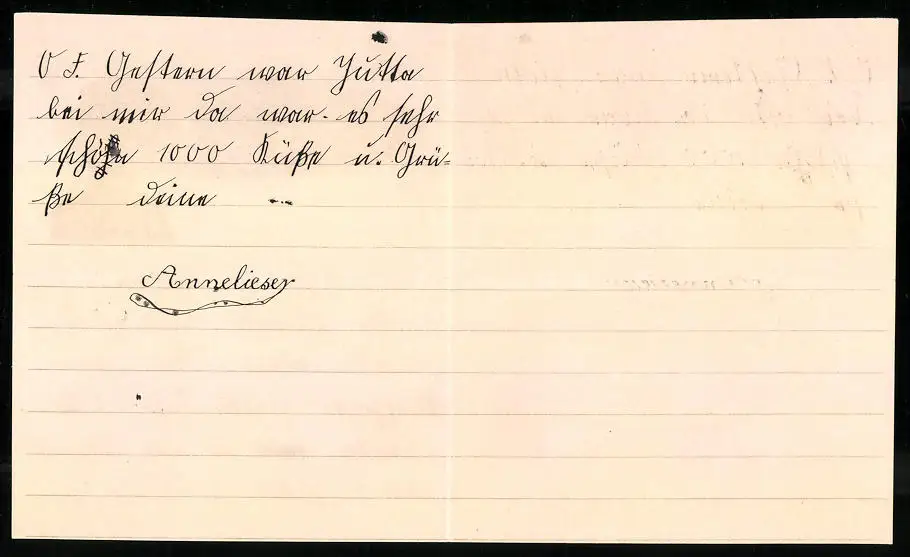 O F. Gestern war Jutta
bei mir da war es sehr
schön 1000 Küße u. Grü-
ße deine
Annelieser